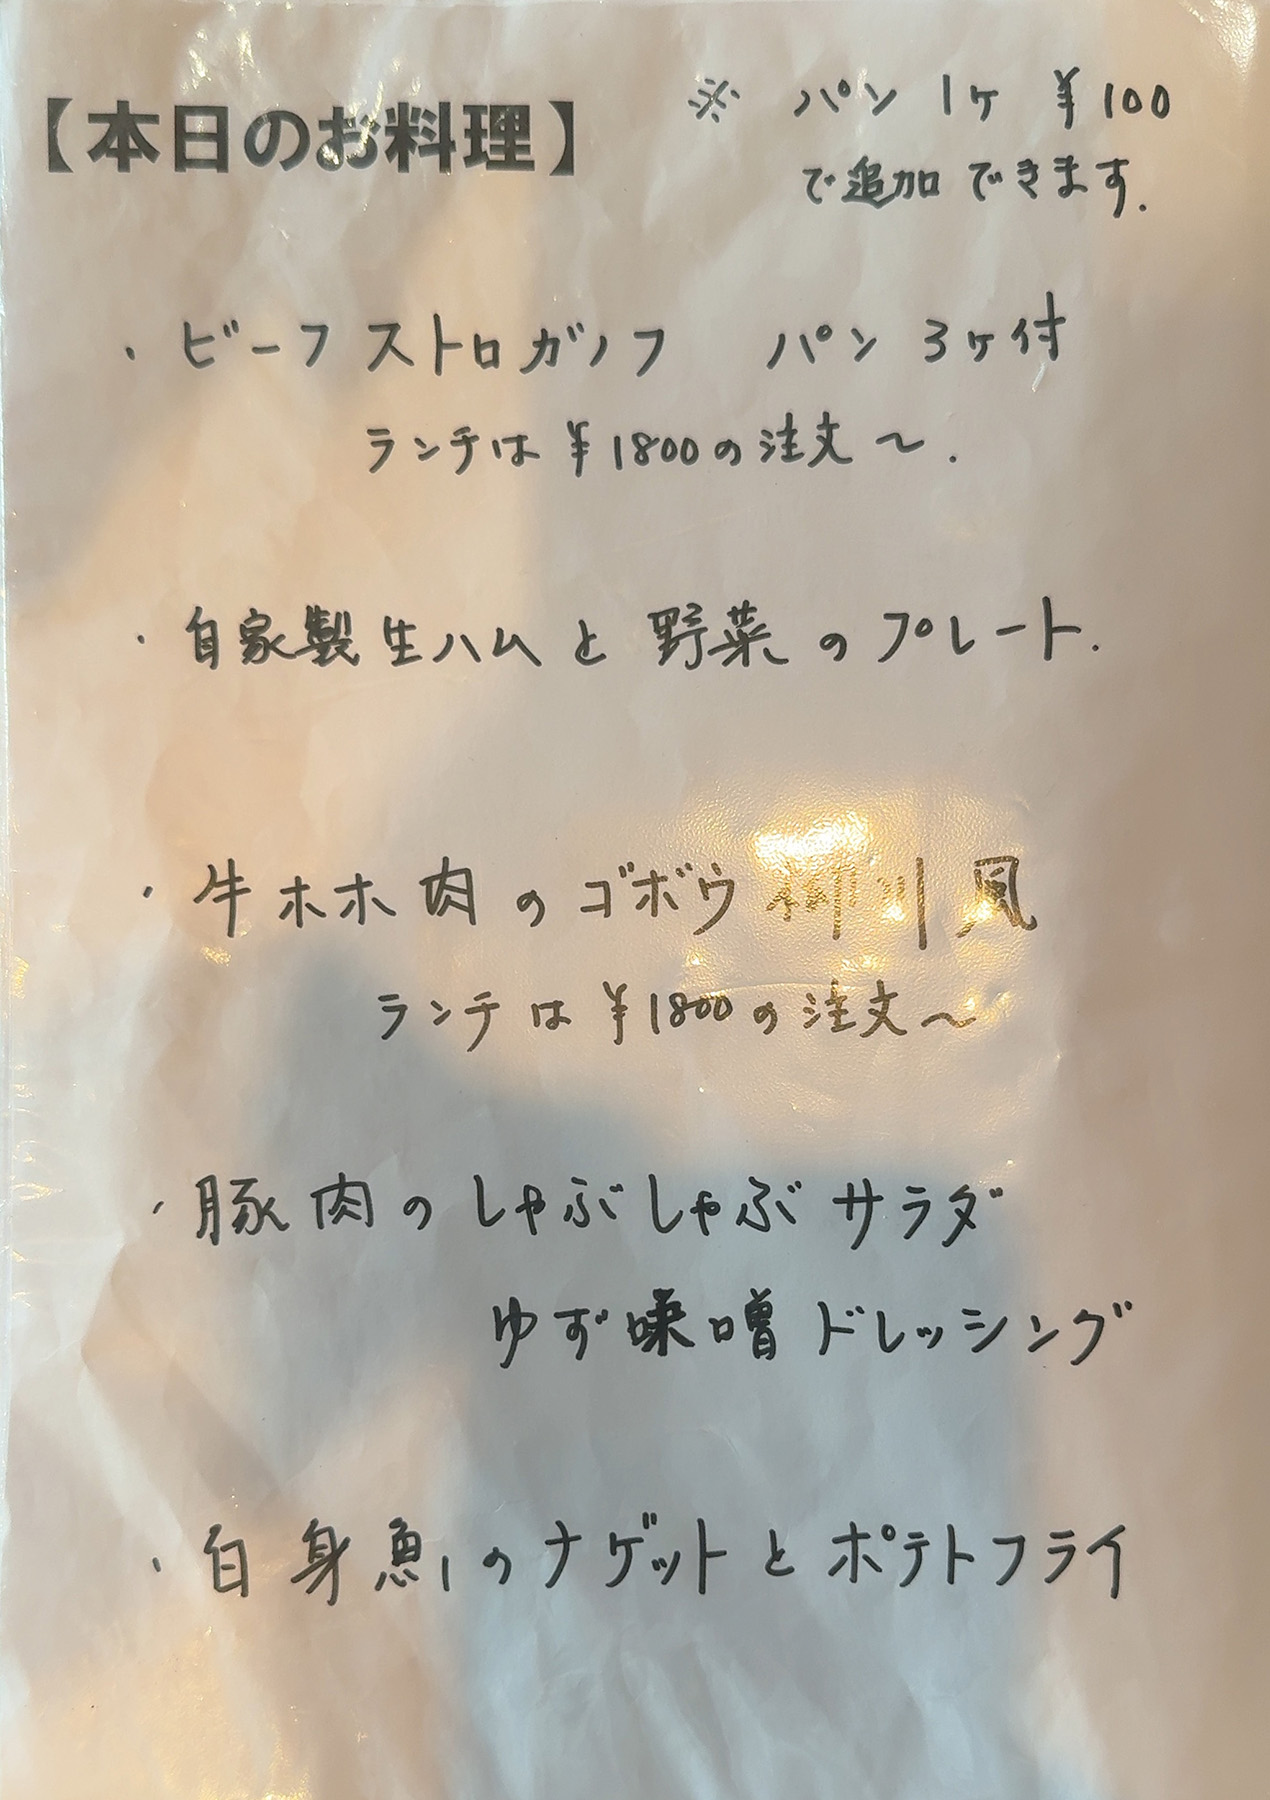 【本日のお料理】
※ パン 1ヶ ¥100
で追加できます.
・ビーフストロガノフ パン 3ヶ付
ランチは ¥1800の注文〜.
・自家製生ハムと野菜のプレート.
・牛ホホ肉のゴボウ柳川風
ランチは ¥1800の注文〜
・豚肉のしゃぶしゃぶサラダ
ゆず味噌ドレッシング
・白身魚のナゲットとポテトフライ